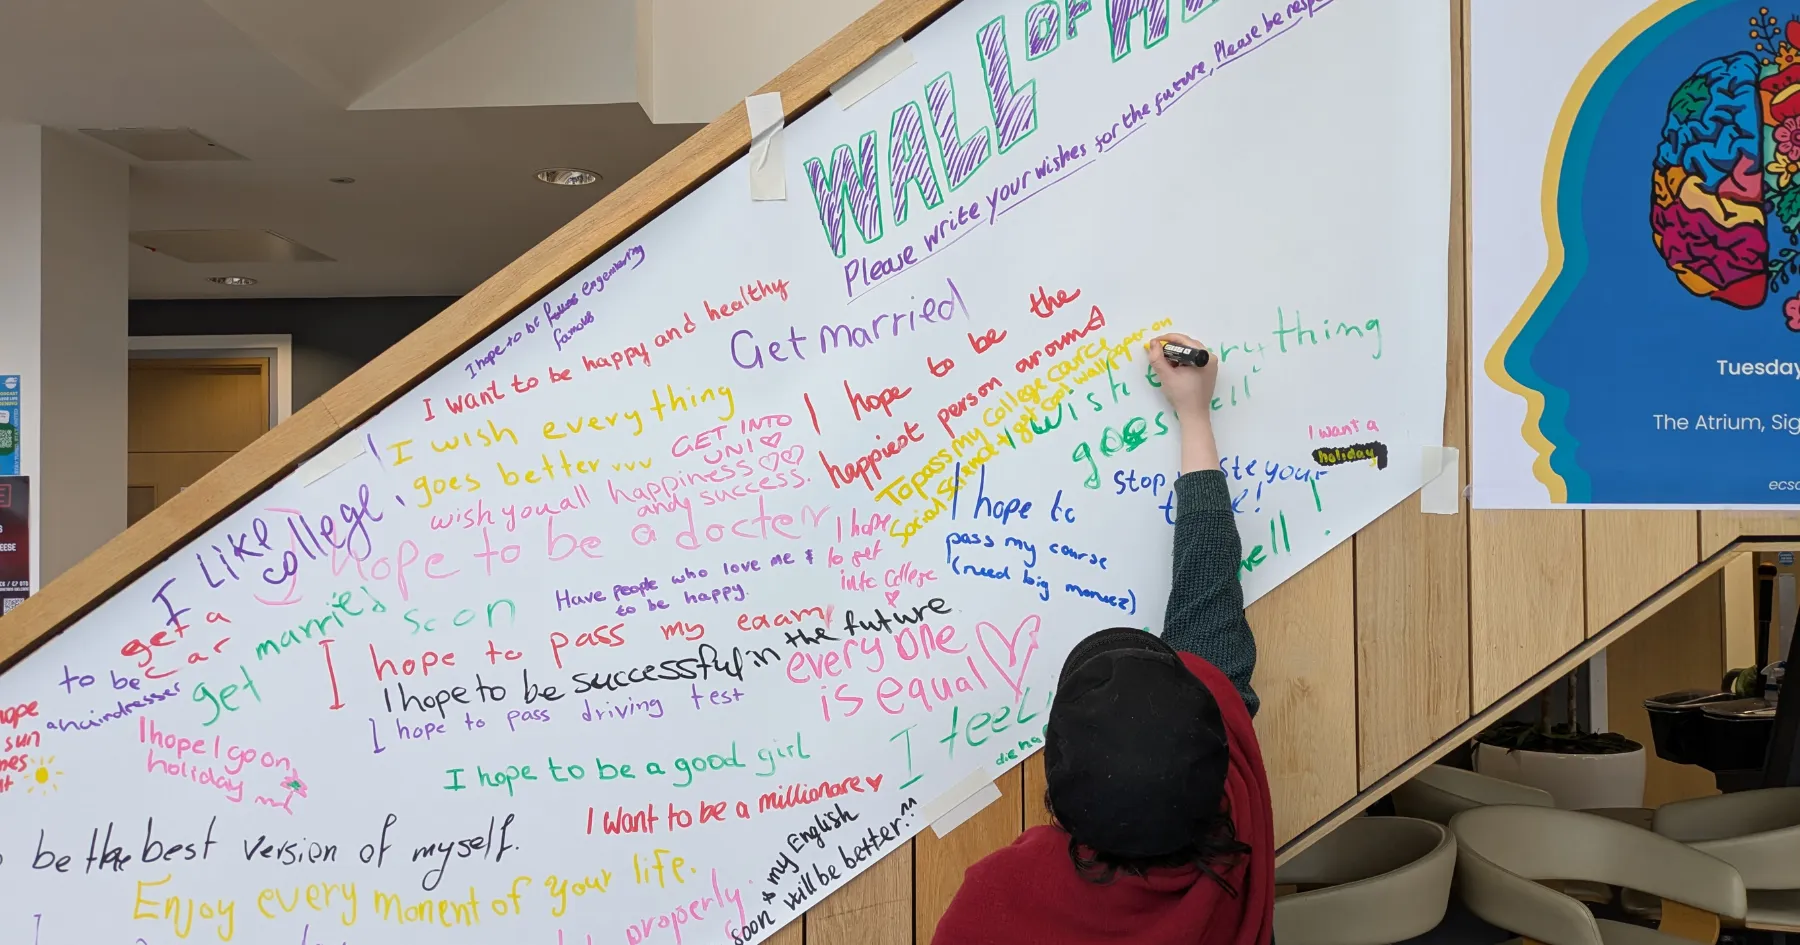 WALL OF
Please write your wishes for the future, Please be
I hope to be
famous
I want to be happy and healthy
Get married
I hope to be the
happiest person around
I wish everything
goes better
GET INTO
UNI
wish you all happiness
and success.
I like
college
hope to be a docter
To pass my College cource
Social Science + get cool wallpaper on
I wish everything
goes well
I want a
holiday
stop waste your
time!
I hope to
pass my course
(need big moneez)
well!
I hope
to get
into College
Have people who love me &
to be happy.
get a
car
get married soon
I hope to pass my exam
I hope to be successful in the future
I hope to pass driving test
everyone
is equal
to be
a hairdresser
hope
sun
I hope I go on
holiday
I feel
I hope to be a good girl
I want to be a millionare
be the best version of myself.
Enjoy every moment of your life.
properly
my English
soon will be better!!
Tuesday
The Atrium,